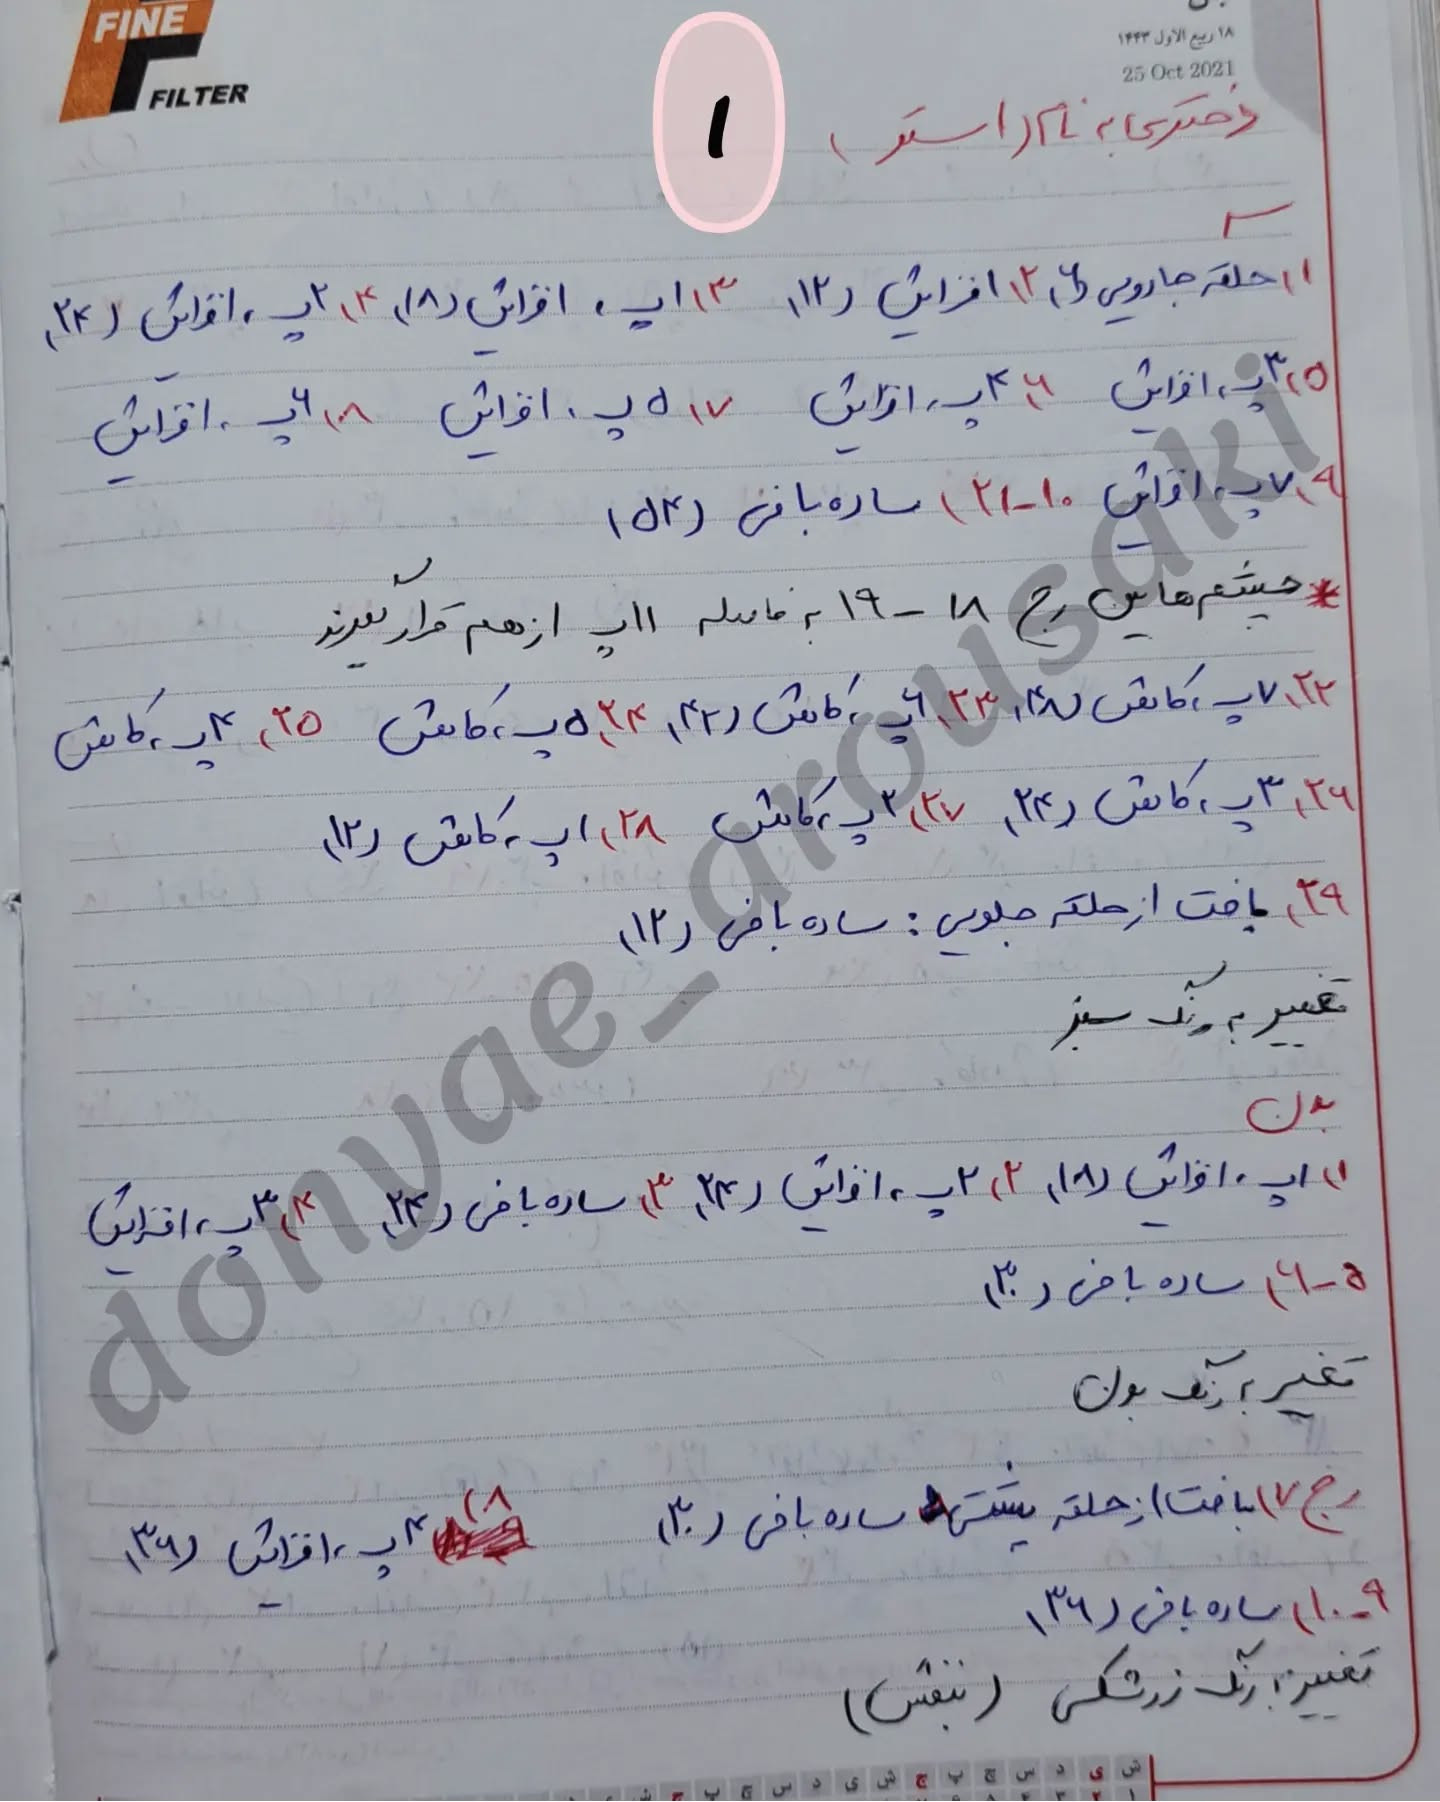 FINE
FILTER
۱۸ ربیع الاول ۱۴۴۳
25 Oct 2021
۱
دختری به نام (استو)
سر
۱) حلقه جادویی ۶، ۲) افزایش (۱۲)، ۳) ۱پ، افزایش (۱۸)، ۴) ۲پ، افزایش (۲۴)
۵) ۳پ، افزایش ۶) ۴پ، افزایش ۷) ۵پ، افزایش ۸) ۶پ، افزایش
۹) ۷پ، افزایش ۱۰-۲۱) ساده بافی (۵۴)
* چشم ها بین رج ۱۸-۱۹ به فاصله ۱۱پ از هم قرار گیرند
۲۲) ۷پ، کاهش (۴۸) ۲۳) ۶پ، کاهش (۴۲) ۲۴) ۵پ، کاهش ۲۵) ۴پ، کاهش
۲۶) ۳پ، کاهش (۲۴) ۲۷) ۲پ، کاهش ۲۸) ۱پ، کاهش (۱۲)
۲۹) بافت از حلقه جلویی : ساده بافی (۱۲)
تغییر به رنگ سبز
بدن
۱) ۱پ، افزایش (۱۸) ۲) ۲پ، افزایش (۲۴) ۳) ساده بافی (۲۴) ۴) ۳پ، افزایش
۵-۶) ساده بافی (۳۰)
تغییر به رنگ بدن
رج ۷) بافت از حلقه پشتی ساده بافی (۳۰) ۸) ۴پ، افزایش (۳۶)
۹-۱۰) ساده بافی (۳۶)
تغییر به رنگ زرشکی (بنفش)
donyae_arousaki
ش ی د س چ پ ج ش ی د س چ پ ج